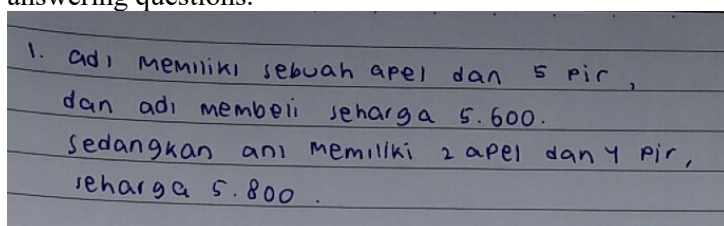 answering questions.
1. adi memiliki sebuah apel dan 5 pir,
dan adi membeli seharga 5.600.
sedangkan ani memiliki 2 apel dan 4 pir,
seharga 5.800.